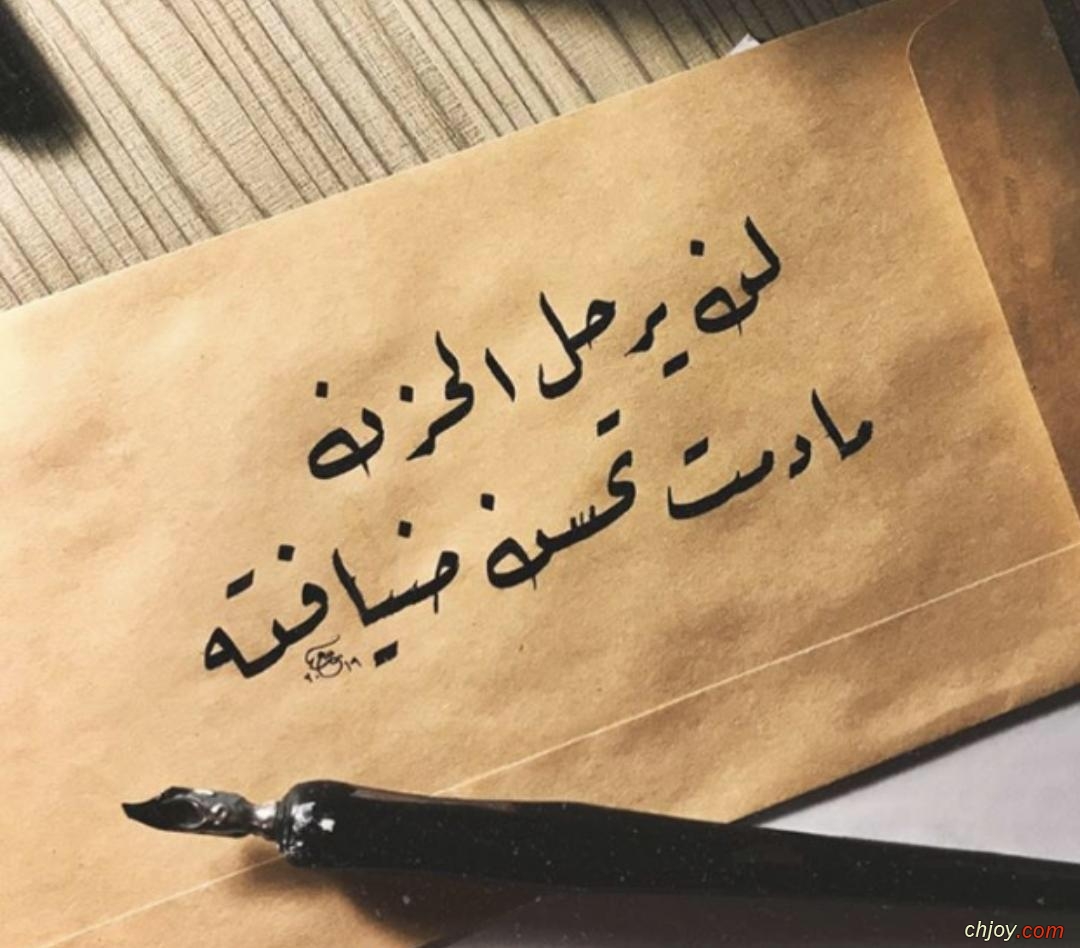 لن يرحل الحزن
مادمت تحسن ضيافته
chjoy.com